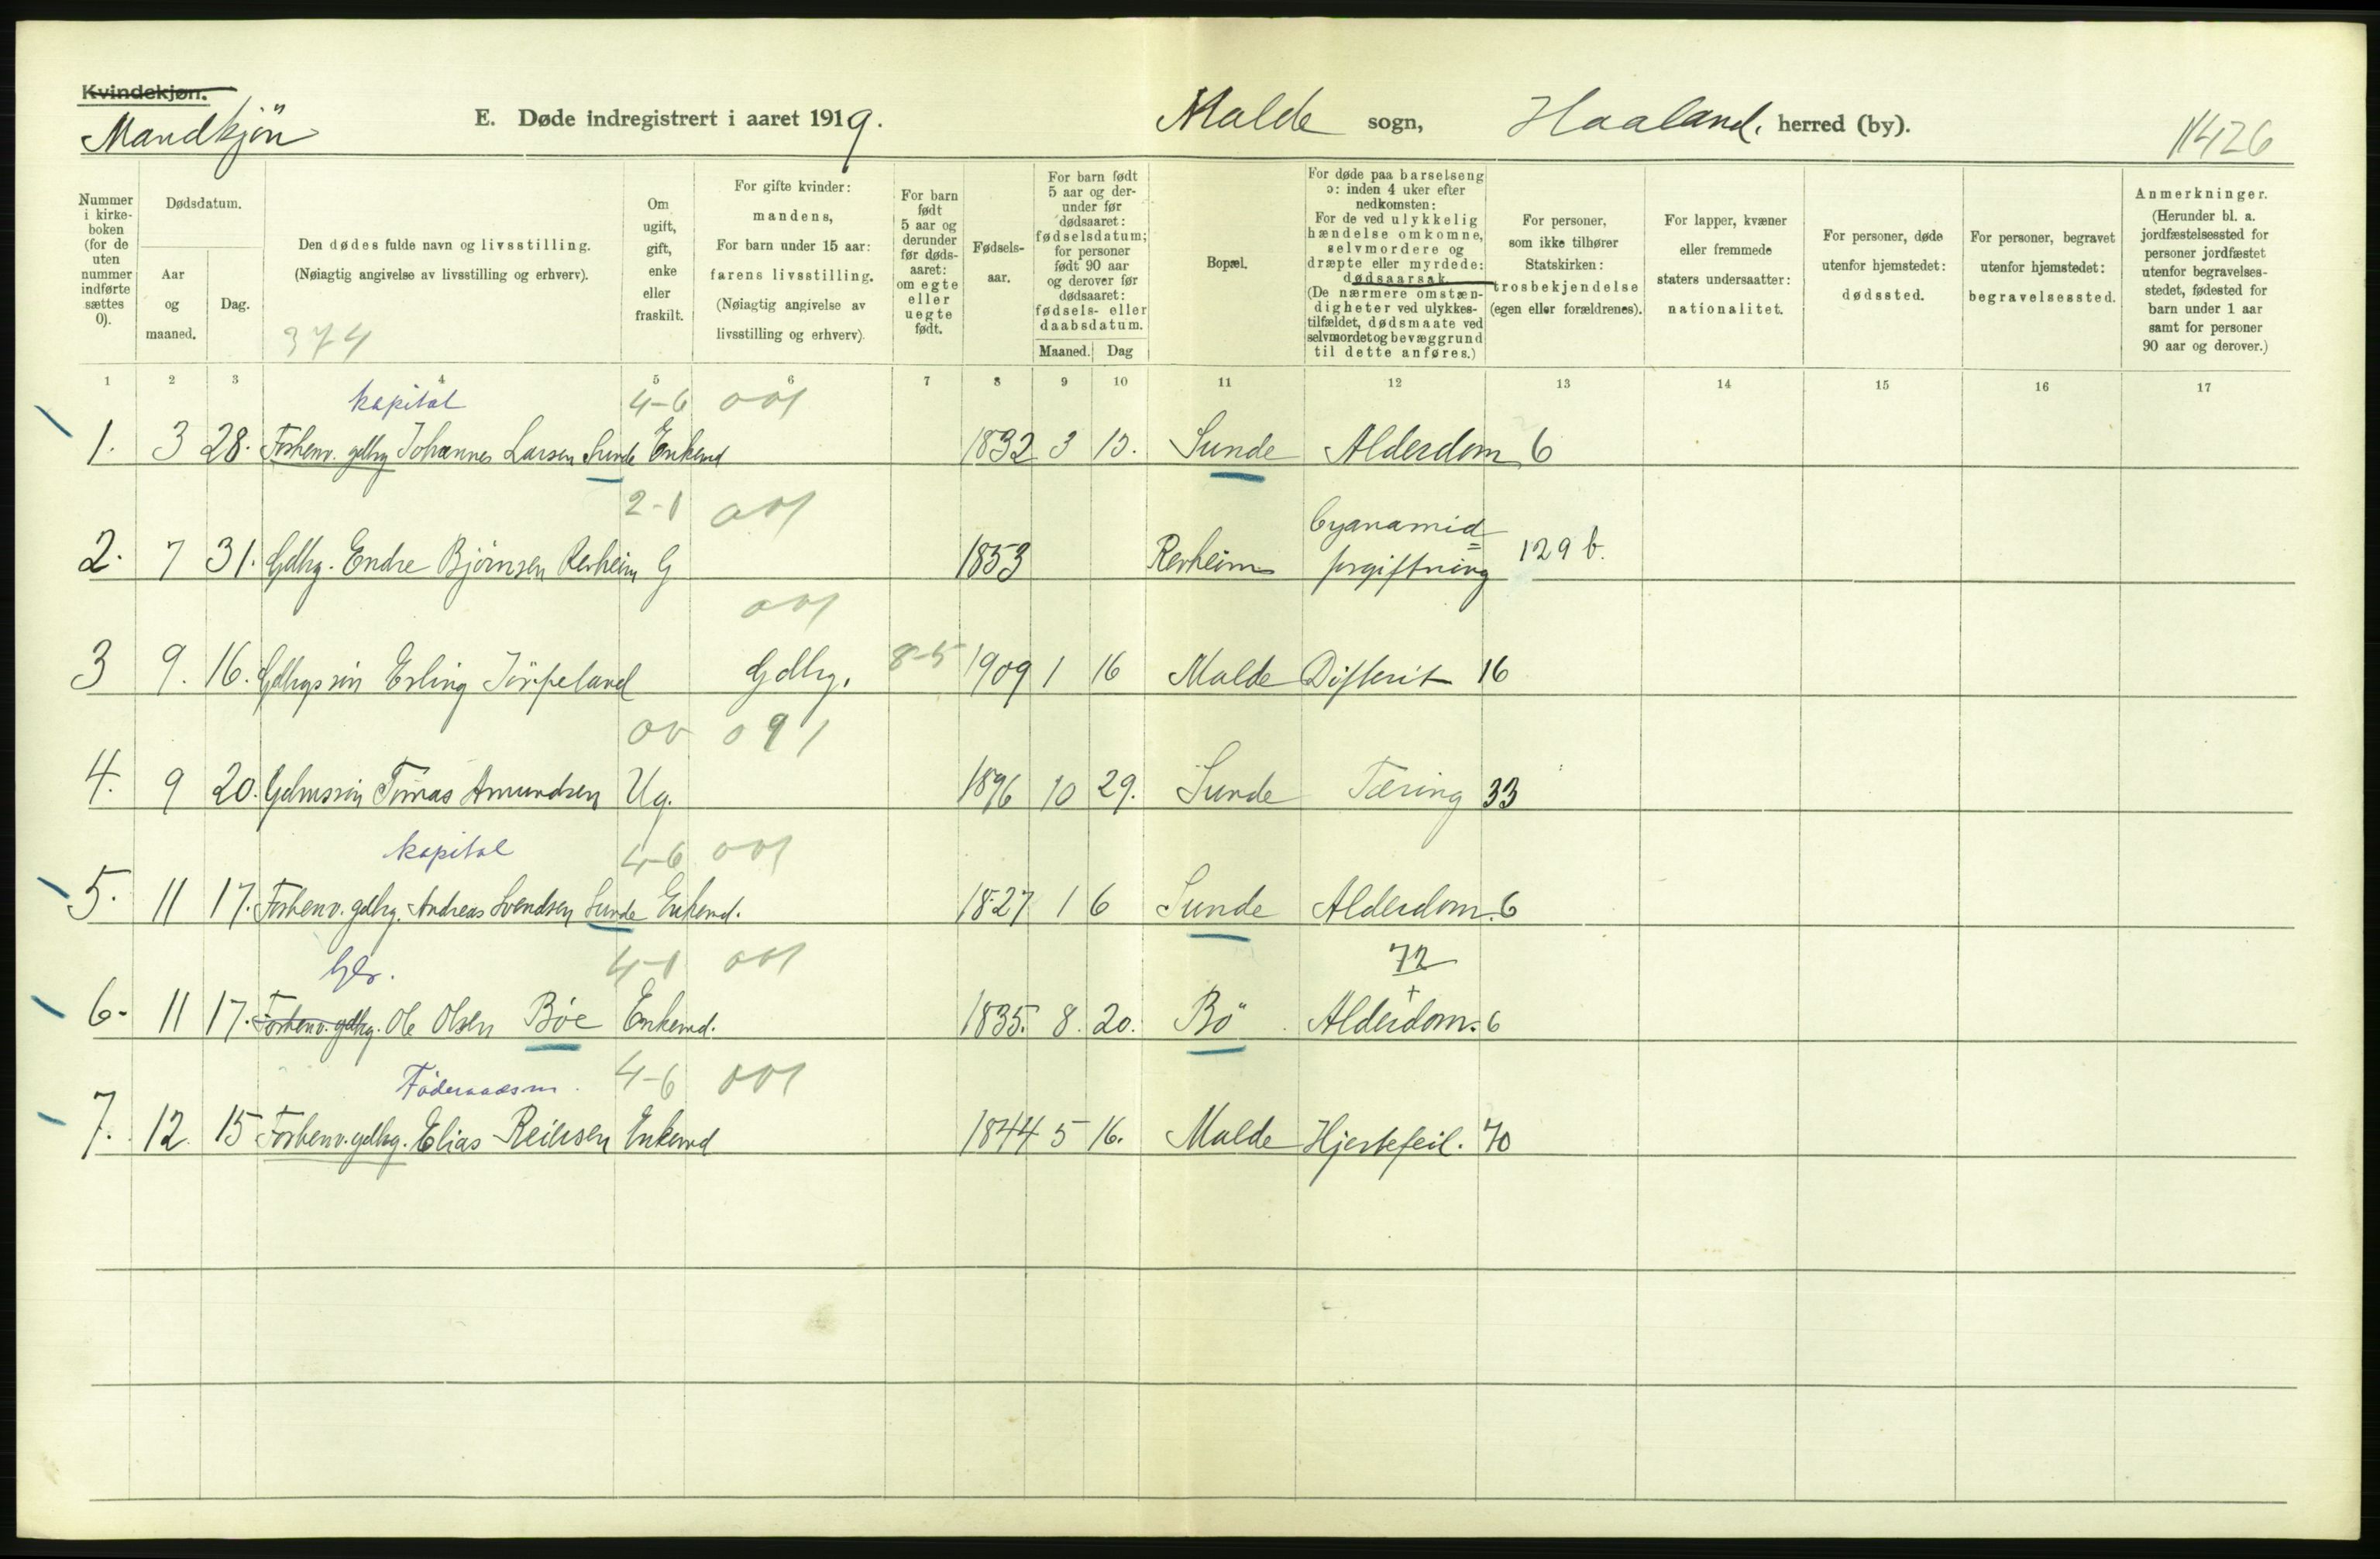 Kvindekjøn.
Mandkjön
E. Døde indregistrert i aaret 1919.
Malde sogn, Haaland. herred (by).
11426
Nummer i kirke-boken (for de uten nummer indførte sættes 0).
Dødsdatum.
Aar og maaned.
Dag.
Den dødes fulde navn og livsstilling.
(Nøiagtig angivelse av livsstilling og erhverv).
374
Om ugift, gift, enke eller fraskilt.
For gifte kvinder: mandens,
For barn under 15 aar: farens livsstilling.
(Nøiagtig angivelse av livsstilling og erhverv).
For barn født 5 aar og derunder før døds-aaret: om egte eller uegte født.
Fødsels-aar.
For barn født 5 aar og der-under før dødsaaret: fødselsdatum; for personer født 90 aar og derover før dødsaaret: fødsels- eller daabsdatum.
Maaned. Dag
Bopæl.
For døde paa barselseng ɔ: inden 4 uker efter nedkomsten:
For de ved ulykkelig hændelse omkomne, selvmordere og dræpte eller myrdede: dødsaarsak.
(De nærmere omstæn-digheter ved ulykkes-tilfældet, dødsmaate ved selvmordet og bevæggrund til dette anføres.)
For personer, som ikke tilhører Statskirken: trosbekjendelse (egen eller forældrenes).
For lapper, kvæner eller fremmede staters undersaatter: nationalitet.
For personer, døde utenfor hjemstedet: dødssted.
For personer, begravet utenfor hjemstedet: begravelsessted.
Anmerkninger.
(Herunder bl. a. jordfæstelsessted for personer jordfæstet utenfor begravelses-stedet, fødested for barn under 1 aar samt for personer 90 aar og derover.)
1 2 3 4 5 6 7 8 9 10 11 12 13 14 15 16 17
kapital 4-6 001
1. 3 28. Forhenv. gdbrg Johannes Larsen Sunde Enkemd 1832 3 13. Sunde Alderdom 6
2-1 001
2. 7 31. Gdbrg. Endre Bjørnsen Revheim G 1853 Revheim Cyanamid= forgiftning 129 b.
001
3 9. 16. Gdbrgs sön Erling Jörpeland Gdbrg. 8-5 1909 1 16 Malde Difterit 16
00 091
4. 9 20. Gdmssön Tomas Amundsen Ug. 1896 10 29. Sunde Tæring 33
kapital 4-6 001
5. 11 17. Forhenv. gdbrg. Andreas Svendsen Sunde Enkemd. 1827 1 6 Sunde Alderdom. 6
4-1 001 72
6. 11 17. Forhenv. gdbrg. Ole Olsen Böe Enkemd. 1835. 8. 20. Bö Alderdom. 6
Föderaadsm. 4-6 001
7. 12. 15 Forhenv. gdbrg. Elias Reiersen Enkemd 1844 5 16. Malde Hjertefeil. 70